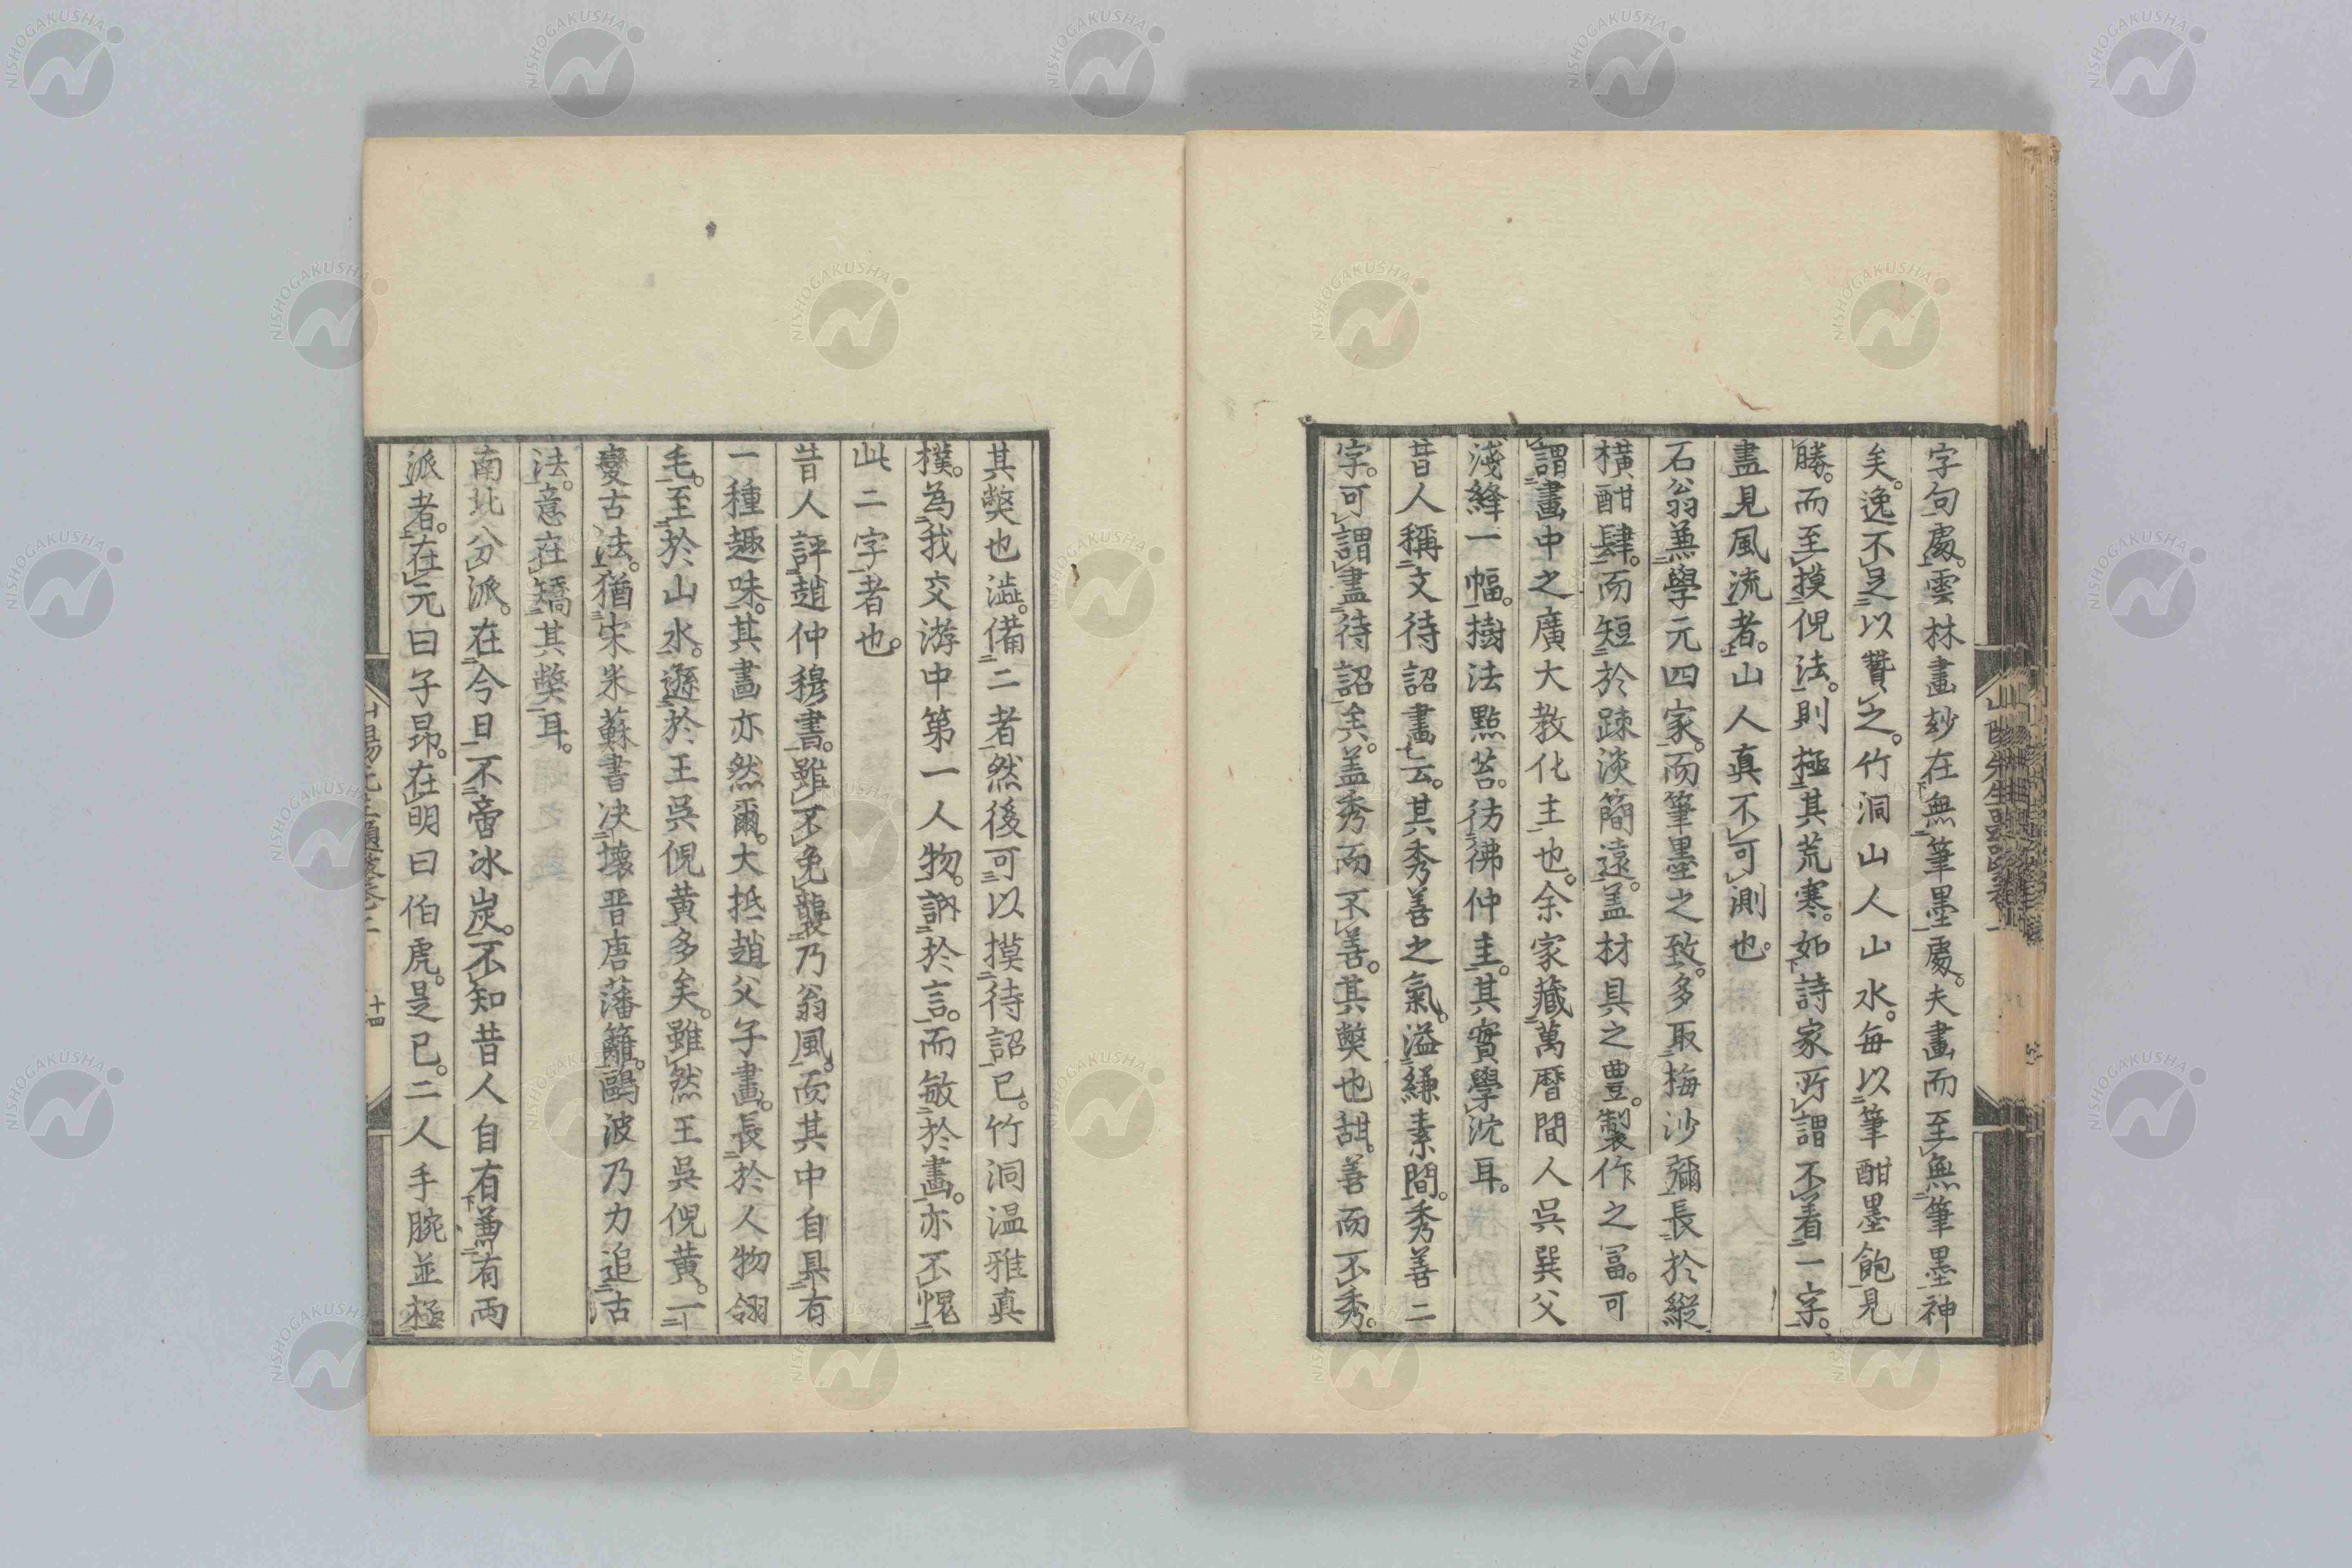 字句處。雲林畫玅在無筆墨處。夫畫而至無筆墨神
矣。逸不足以贊之。竹洞山人山水。每以筆酣墨飽見
勝。而至摸倪法。則極其荒寒。如詩家所謂不着一字。
盡見風流者。山人真不可測也。
石翁兼學元四家。而筆墨之致。多取梅沙彌長於縱
橫酣肆。而短於疎淡簡遠。蓋材具之豊。製作之冨。可
謂畫中之廣大教化主也。余家藏萬暦間人吳巽父
淺絳一幅。樹法點苔。彷彿仲圭。其實學沈耳。
昔人稱文待詔畫云。其秀善之氣。溢縑素間。秀善二
字。可謂盡待詔矣。蓋秀而不善。其獘也甜。善而不秀。
其獘也澁。備二者然後可以摸待詔已。竹洞温雅真
樸。為我交游中第一人物。訥於言。而敏於畫。亦不愧
此二字者也。
昔人評趙仲穆書。雖不免襲乃翁風。而其中自具有
一種趣味。其畫亦然爾。大抵趙父子畫。長於人物翎
毛。至於山水。遜於王吳倪黄多矣。雖然王吳倪黄。一
變古法。猶宋朱蘇書决壊晋唐藩籬。鷗波乃力追古
法。意在矯其獘耳。
南北分派。在今日不啻冰炭。不知昔人自有兼有両
派者。在元曰子昂。在明曰伯虎。是已。二人手腕並極
十四
NISHOGAKUSHA